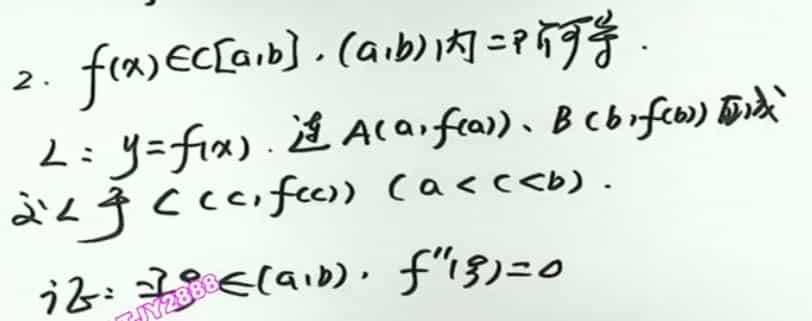 2. f(x)∈C[a,b],(a,b)内二阶可导.
L: y=f(x).过A(a,f(a))、B(b,f(b))直线
交L于C(c,f(c))(a<c<b).
证:∃ξ∈(a,b), f''(ξ)=0
TJY2888